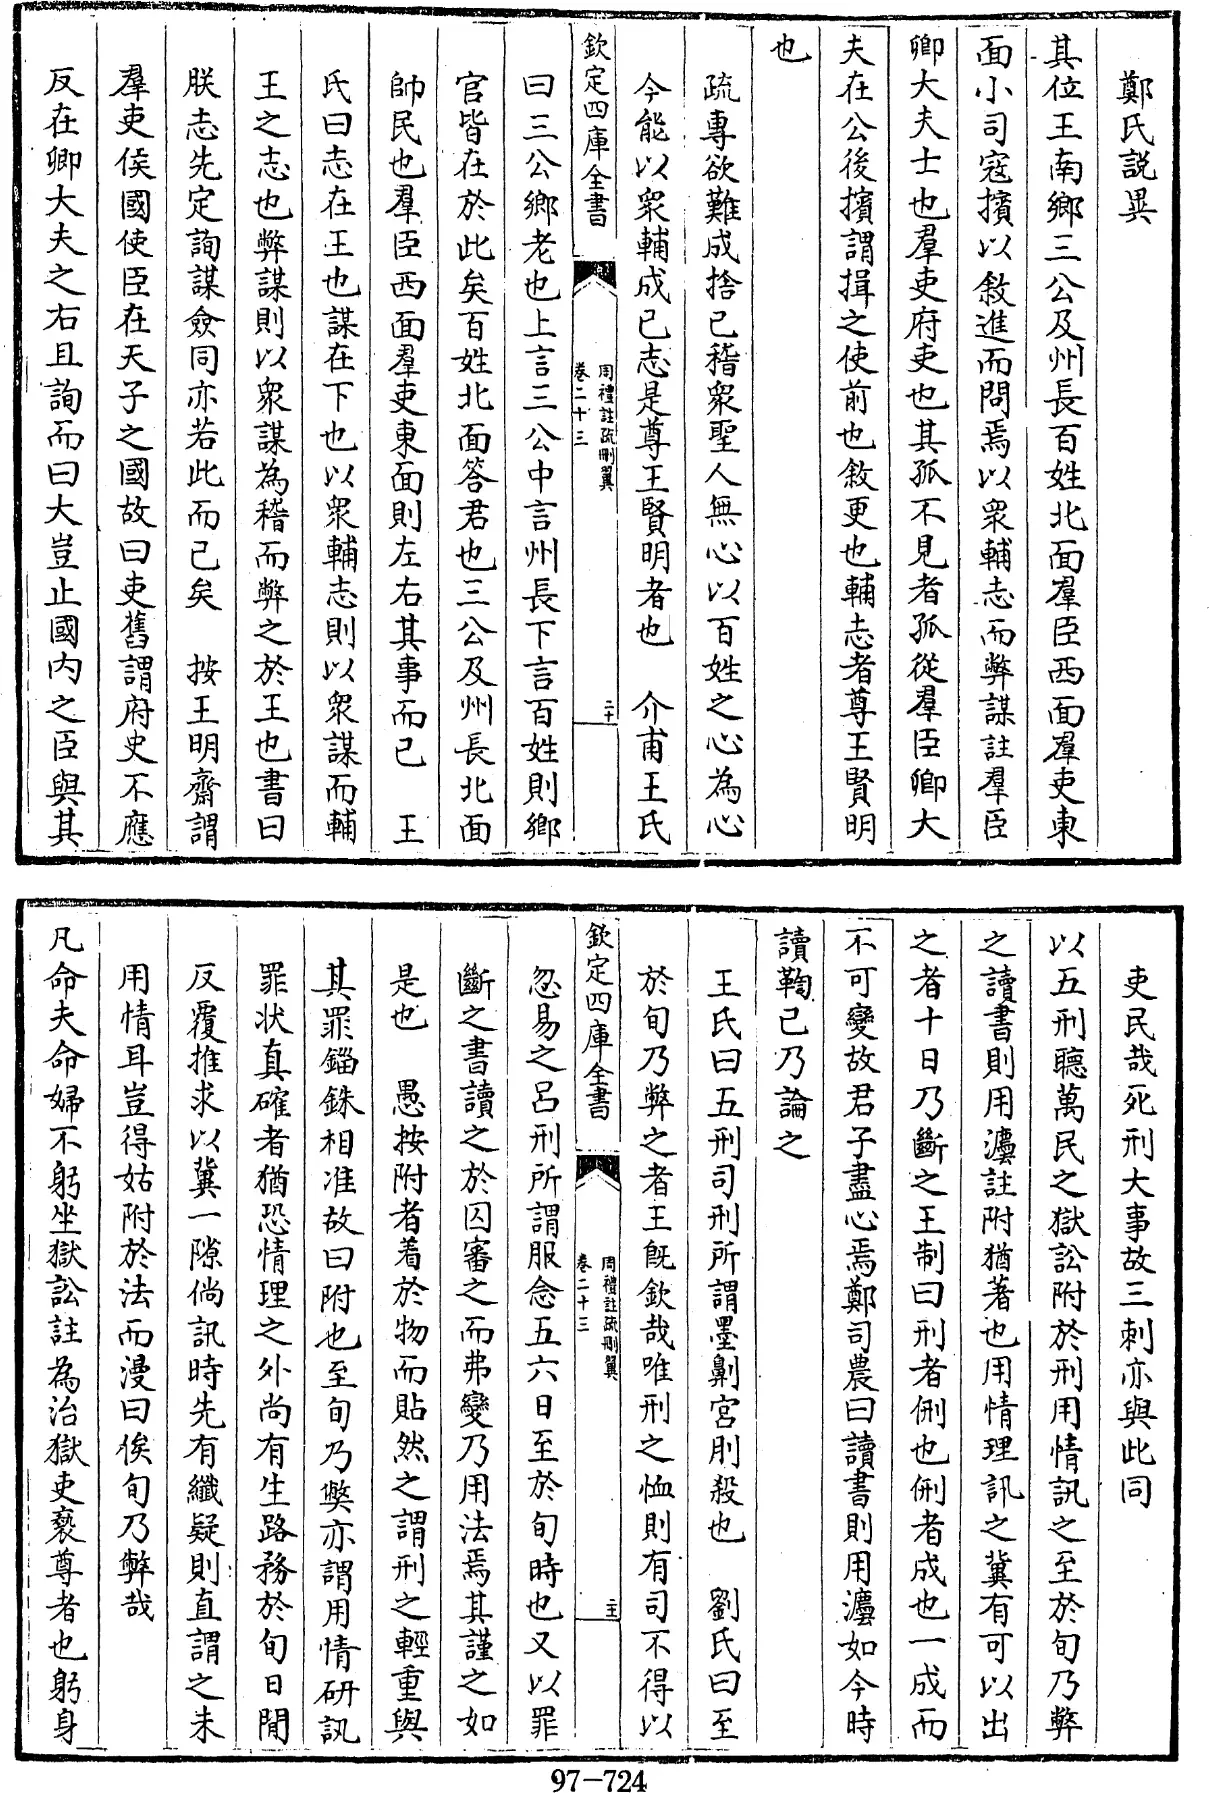 鄭氏説異
其位王南鄉三公及州長百姓北面羣臣西面羣吏東
面小司寇擯以敘進而問焉以衆輔志而弊謀註羣臣
卿大夫士也羣吏府吏也其孤不見者孤從羣臣卿大
夫在公後擯謂揖之使前也敘更也輔志者尊王賢明
也
疏專欲難成捨己稽衆聖人無心以百姓之心為心
今能以衆輔成己志是尊王賢明者也　介甫王氏
欽定四庫全書
周禮註疏刪翼
卷二十三
二十
曰三公鄉老也上言三公中言州長下言百姓則鄉
官皆在於此矣百姓北面答君也三公及州長北面
帥民也羣臣西面羣吏東面則左右其事而已　王
氏曰志在王也謀在下也以衆輔志則以衆謀而輔
王之志也弊謀則以衆謀為稽而弊之於王也書曰
朕志先定詢謀僉同亦若此而已矣　按王明齋謂
羣吏侯國使臣在天子之國故曰吏舊謂府史不應
反在卿大夫之右且詢而曰大豈止國内之臣與其
吏民哉死刑大事故三刺亦與此同
以五刑聽萬民之獄訟附於刑用情訊之至於旬乃弊
之讀書則用灋註附猶著也用情理訊之冀有可以出
之者十日乃斷之王制曰刑者侀也侀者成也一成而
不可變故君子盡心焉鄭司農曰讀書則用灋如今時
讀鞫已乃論之
王氏曰五刑司刑所謂墨劓宮刖殺也　劉氏曰至
於旬乃弊之者王既欽哉唯刑之恤則有司不得以
欽定四庫全書
周禮註疏刪翼
卷二十三
二十一
忽易之呂刑所謂服念五六日至於旬時也又以罪
斷之書讀之於囚審之而弗變乃用法焉其謹之如
是也　愚按附者着於物而貼然之謂刑之輕重與
其罪錙銖相准故曰附也至旬乃獘亦謂用情研訊
罪状真確者猶恐情理之外尚有生路務於旬日閒
反覆推求以冀一隙倘訊時先有纖疑則直謂之未
用情耳豈得姑附於法而漫曰俟旬乃弊哉
凡命夫命婦不躬坐獄訟註為治獄吏褻尊者也躬身
97-724